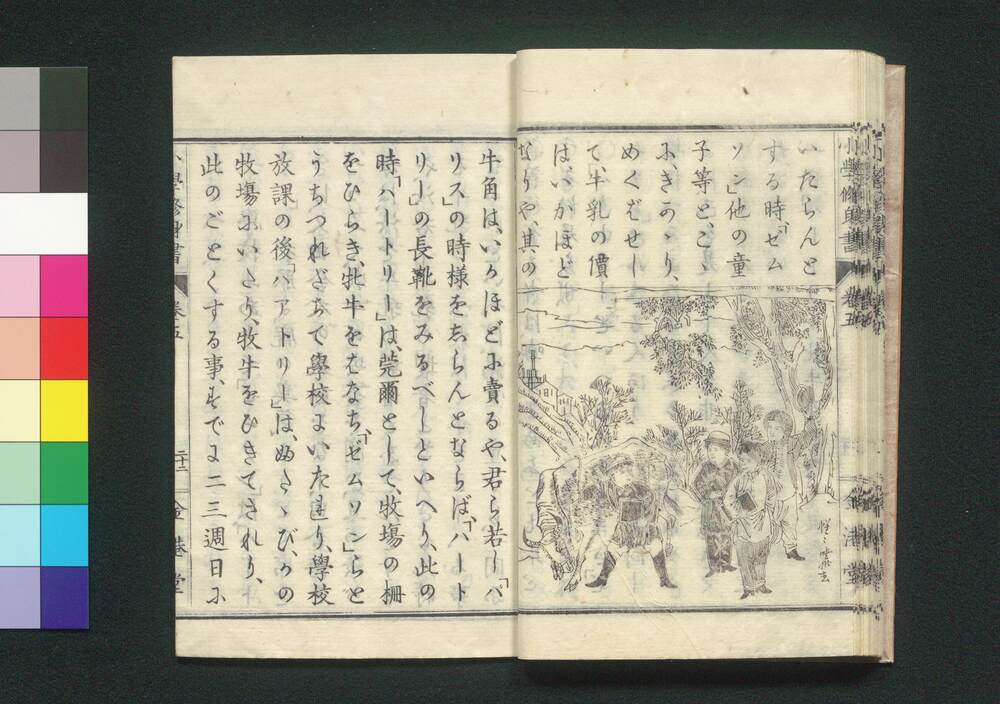 いたらんと
する時、「ゼム
ソン」他の童
子等と、こゝ
に、きたゝり、
めくばせし
て、牛乳の價
はいかほど
なりや、其の
牛角は、いかほどに賣るや、君ら若し「パ
リス」の時様をしらんとならば、「ハート
リー」の長靴をみるべしといへり、此の
時「ハートリー」は、莞爾として、牧塲の柵
をひらき、牝牛をはなち、「ゼムソン」らと
うちつれだちて學校にいたれり、學校
放課の後「ハアトリー」は、ぬたゝび、かの
牧塲にいたり、牧牛をひきてきれり、
此のごとくする事、すでに二三週日に
小學修身書
卷五
二十二
金港堂
小學修身書
卷五
金港堂